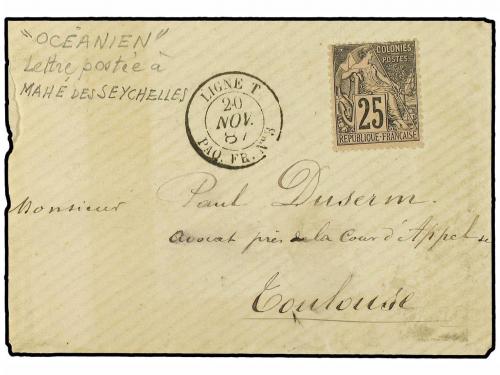 "OCÉANIEN"
Lettre postée à
MAHÉ DES SEYCHELLES
LIGNE T
20
NOV.
87
PAQ. FR. Nº 3
COLONIES
POSTES
25
REPUBLIQUE FRANÇAISE
Monsieur Paul Duserm.
avocat près de la Cour d'Appel de
Toulouse